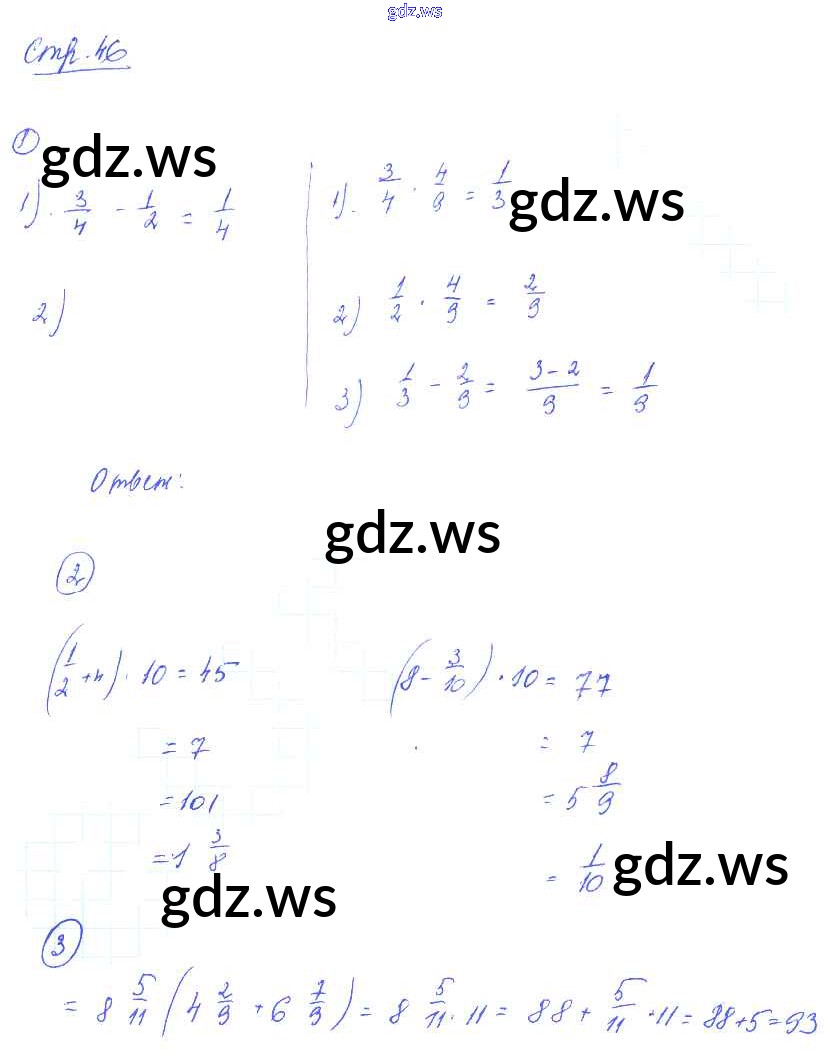 gdz.ws
Стр. 46
①
gdz.ws
1) 3/4 - 1/2 = 1/4
2)
1) 3/4 · 4/9 = 1/3
gdz.ws
2) 1/2 · 4/9 = 2/9
3) 1/3 - 2/9 = 3-2/9 = 1/9
Ответ:
gdz.ws
②
(1/2 + 4) · 10 = 45
= 7
= 101
= 1 3/8
(8 - 3/10) · 10 = 77
= 7
= 5 8/9
= 1/10
gdz.ws
gdz.ws
③
= 8 5/11 (4 2/9 + 6 7/9) = 8 5/11 · 11 = 88 + 5/11 · 11 = 88+5=93